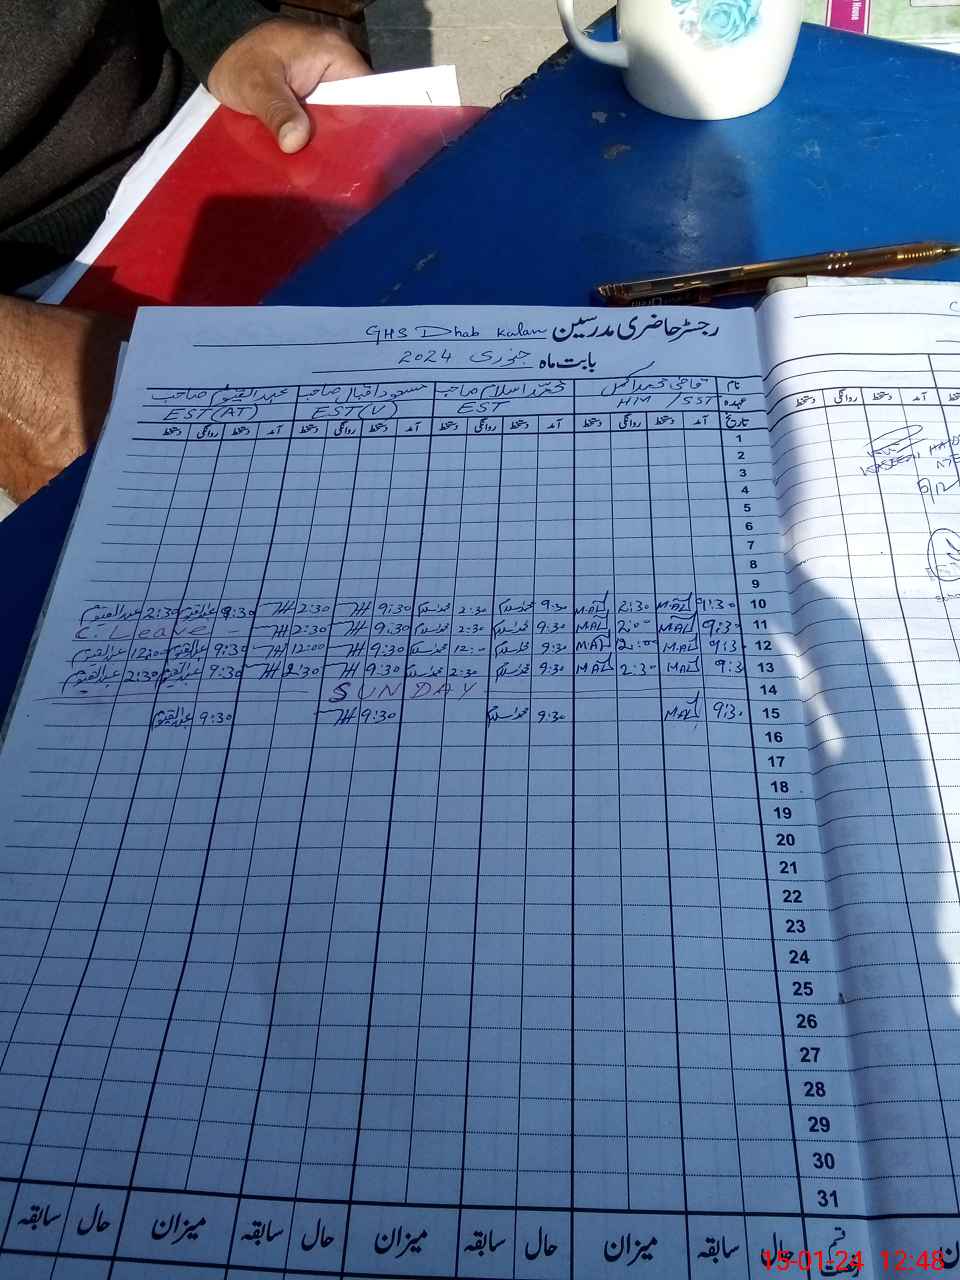 رجسٹر حاضری مدرسین GHS Dhab Kalan
بابت ماہ جنوری 2024
نام قاضی محمد اکمل محمد اسلام صاحب مسعود اقبال صاحب عبدالقیوم صاحب
عہدہ HM / SST EST EST (V) EST (AT)
تاریخ آمد دستخط روانگی دستخط آمد دستخط روانگی دستخط آمد دستخط روانگی دستخط آمد دستخط روانگی دستخط
1
2
3
4
5
6
7
8
9
10 9:30 MAL 2:30 MAL 9:30 محمد اسلام 2:30 محمد اسلام 9:30 2:30 9:30 عبدالقیوم 2:30 عبدالقیوم
11 9:30 MAL 2:00 MAL 9:30 محمد اسلام 2:30 محمد اسلام 9:30 2:30 C. Leave -
12 9:3. MAL 12:00 MAL 9:30 محمد اسلام 12:00 محمد اسلام 9:30 12:00 9:30 عبدالقیوم 12:00 عبدالقیوم
13 9:3 MAL 2:30 MAL 9:30 محمد اسلام 2:30 محمد اسلام 9:30 2:30 9:30 عبدالقیوم 2:30 عبدالقیوم
14 SUNDAY
15 9:3. MAL 9:30 محمد اسلام 9:30 9:30 عبدالقیوم
16
17
18
19
20
21
22
23
24
25
26
27
28
29
30
31
قسم رخصت حال سابقہ میزان حال سابقہ میزان حال سابقہ میزان حال سابقہ
دستخط روانگی دستخط آمد
8/12
Home
15-01-24 12:48